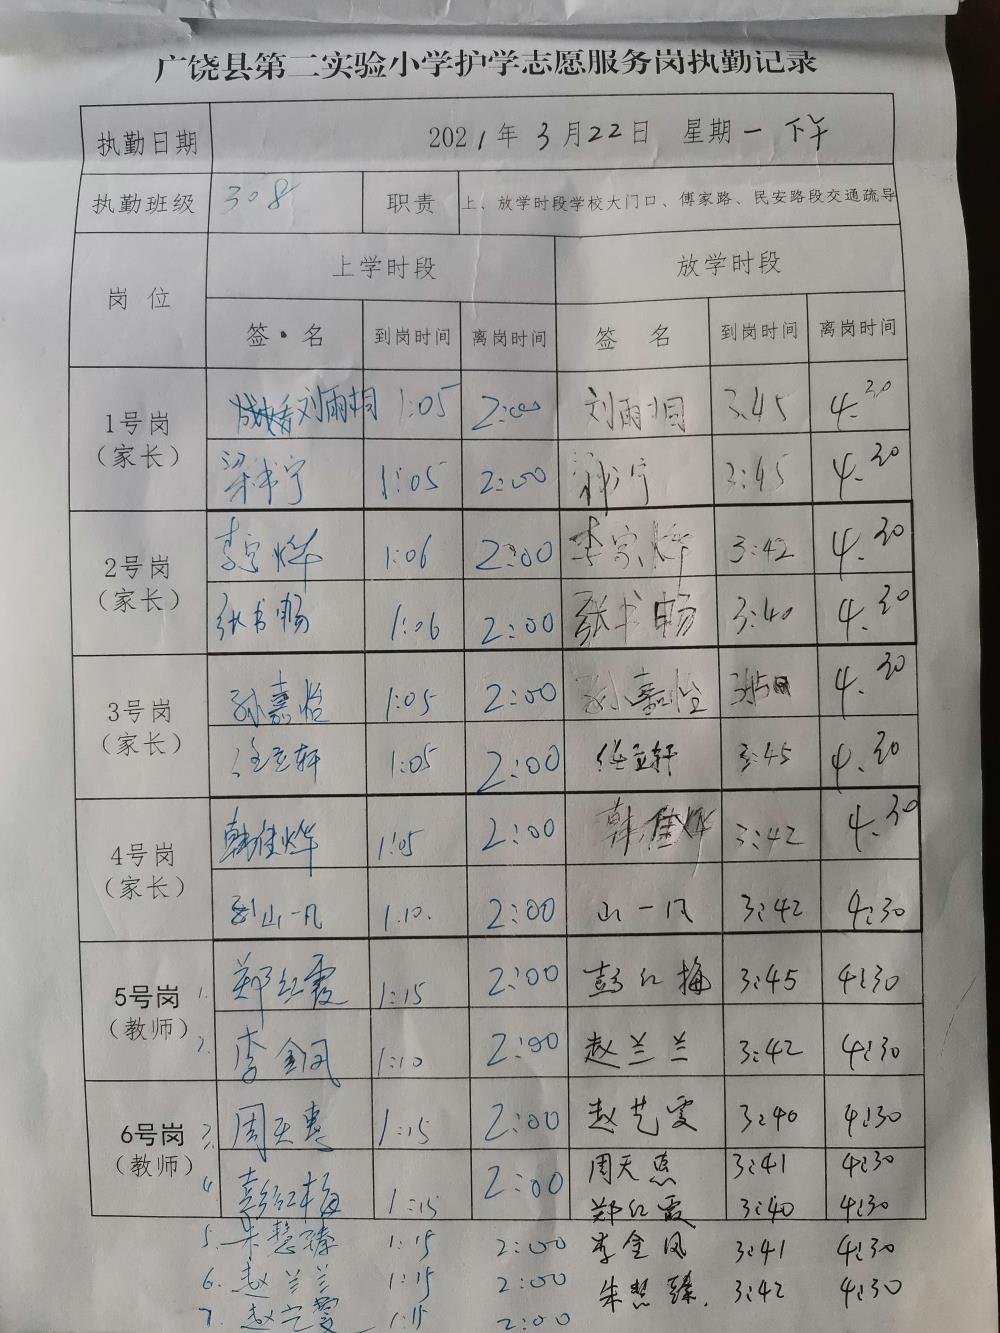 广饶县第二实验小学护学志愿服务岗执勤记录
执勤日期 2021年3月22日 星期一 下午
执勤班级 308 职责 上、放学时段学校大门口、傅家路、民安路段交通疏导
岗位 上学时段 放学时段
签·名 到岗时间 离岗时间 签名 到岗时间 离岗时间
1号岗（家长） 刘雨相 1:05 2:00 刘雨相 3:45 4:30
梁书宁 1:05 2:00 3:45 4:30
2号岗（家长） 李宗烨 1:06 2:00 李宗烨 3:42 4:30
张书畅 1:06 2:00 张书畅 3:40 4:30
3号岗（家长） 孙嘉怡 1:05 2:00 孙嘉怡 4:30
任立轩 1:05 2:00 任立轩 3:45 4:30
4号岗（家长） 韩佳烨 1:05 2:00 韩佳烨 3:42 4:30
山一凡 1:10. 2:00 山一凡 3:42 4:30
5号岗（教师） 1. 郑红霞 1:15 2:00 彭红梅 3:45 4:30
2. 李金凤 1:10 2:00 赵兰兰 3:42 4:30
6号岗（教师） 3. 周天惠 1:15 2:00 赵艺雯 3:40 4:30
4 彭红梅 1:15 2:00 周天惠 3:41 4:30
郑红霞 3:40 4:30
5. 朱慧臻 1:15 2:00 李金凤 3:41 4:30
6. 赵兰兰 1:15 2:00 朱慧臻. 3:42 4:30
7. 赵艺雯 1:15 2:00